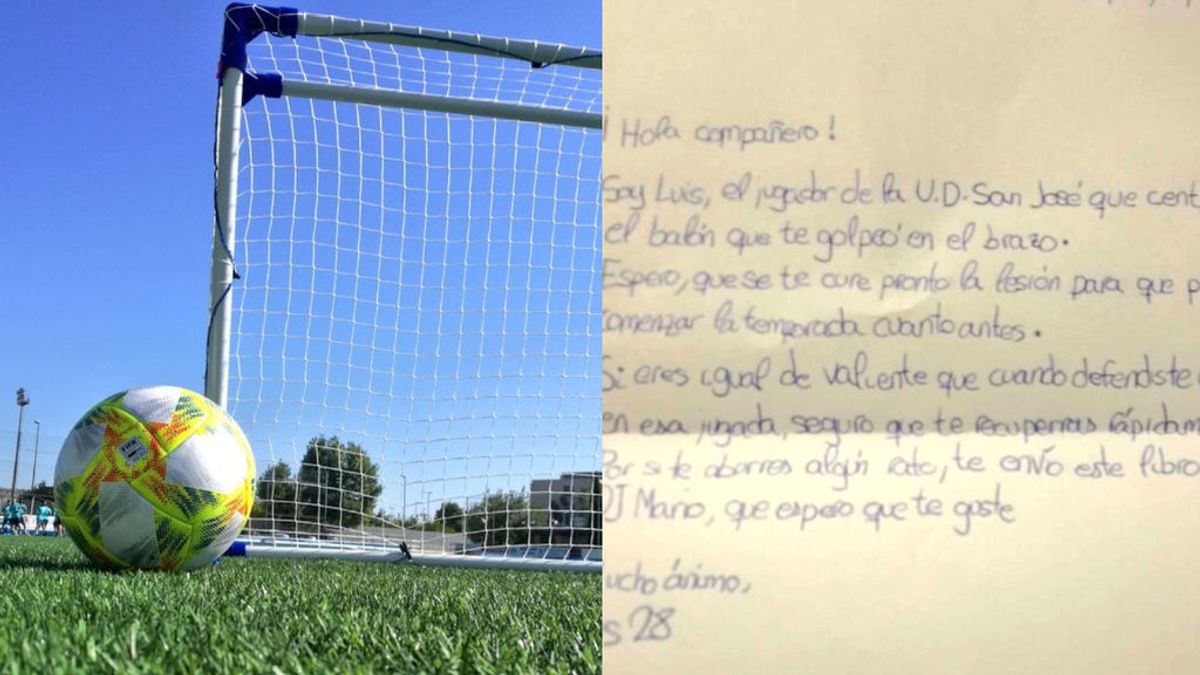 ¡Hola compañero!
Soy Luis, el jugador de la U.D. San José que cent
el balón que te golpeó en el brazo.
Espero, que se te cure pronto la lesión para que p
comenzar la temporada cuanto antes.
Si eres igual de valiente que cuando defendiste
en esa jugada, seguro que te recuperas rápidam
Por si te aburres algún rato, te envío este libro
DJ Mario, que espero que te guste
ucho ánimo,
s 28